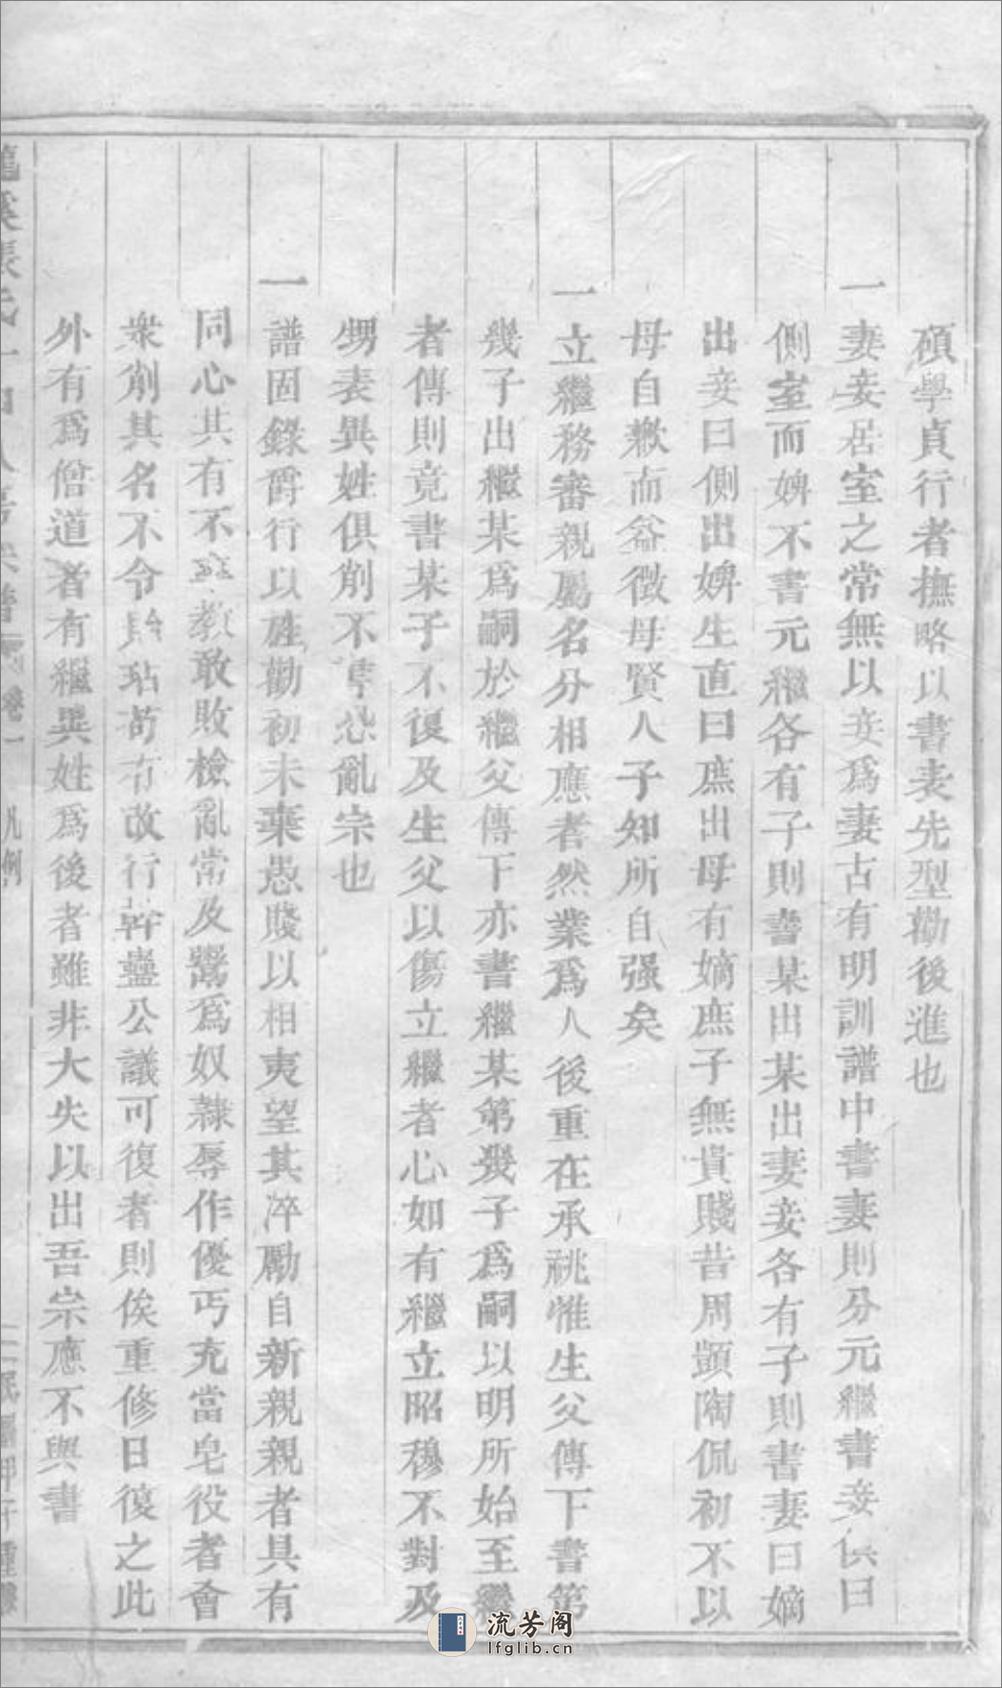 碩學貞行者撫略以書表先型勸後進也
一妻妾居室之常無以妾爲妻古有明訓譜中書妻則分元繼書妾俱曰
側室而婢不書元繼各有子則書某出某出妻妾各有子則書妻曰嫡
出妾曰側出婢生直曰庶出母有嫡庶子無貴賤昔周顗陶侃初不以
母自歉而益徵母賢人子知所自强矣
一立繼務審親屬名分相應者然業爲人後重在承祧惟生父傳下書第
幾子出繼某爲嗣於繼父傳下亦書繼某第幾子爲嗣以明所始至繼
者傳則竟書某子不復及生父以傷立繼者心如有繼立昭穆不對及
甥表異姓俱削不書恐亂宗也
一譜固錄爵行以旌勸初未棄愚賤以相夷望其淬勵自新親親者具有
同心其有不遵教敢敗檢亂常及鬻爲奴隸辱作優丐充當皂役者會
衆削其名不令貽玷苟有改行幹蠱公議可復者則俟重修日復之此
外有爲僧道者有繼異姓爲後者雖非大失以出吾宗應不與書
張氏
凡例
流芳阁
lfglib.cn